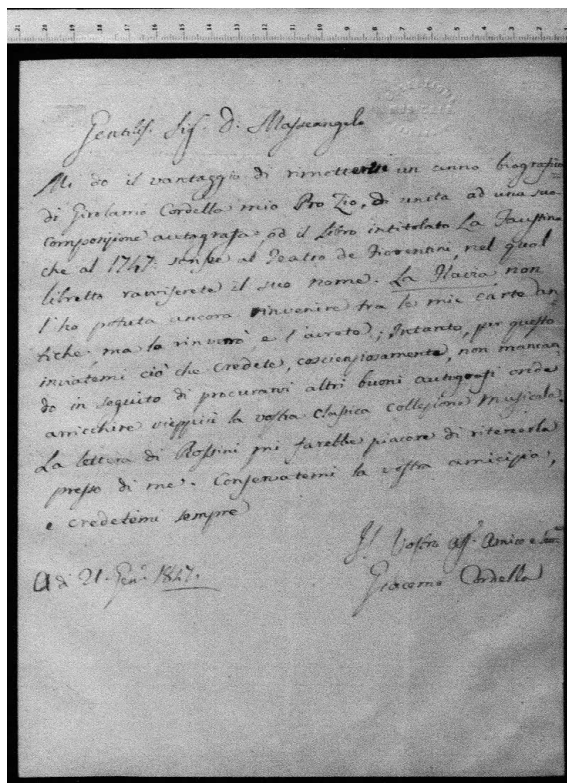 Gentilis. Sig. D. Masseangelo
Mi do il vantaggio di rimettervi un cenno biografico
di Girolamo Cordella mio Pro Zio, di unita ad una sua
composizione autografa, ed il Libro intitolato La Faustina
che al 1747. al Teatro de Fiorentini, nel qual
libretto ravviserete il suo nome. La Flavia non
l'ho potuta ancora rinvenire tra le mie carte an
tiche ma la rinverrò e l'avrete; Intanto, per questo
inviatemi ciò che credete, coscienziosamente, non mancan
do in seguito di procurarvi altri buoni autografi onde
arricchire vieppiù la vostra classica collezione musicale.
La lettera di Rossini mi farebbe piacere di ritenerla
presso di me. Conservatemi la vostra amicizia,
e credetemi sempre
Il Vostro aff. Amico e
A dì 21. Gen. 1847.
Giacomo Cordella